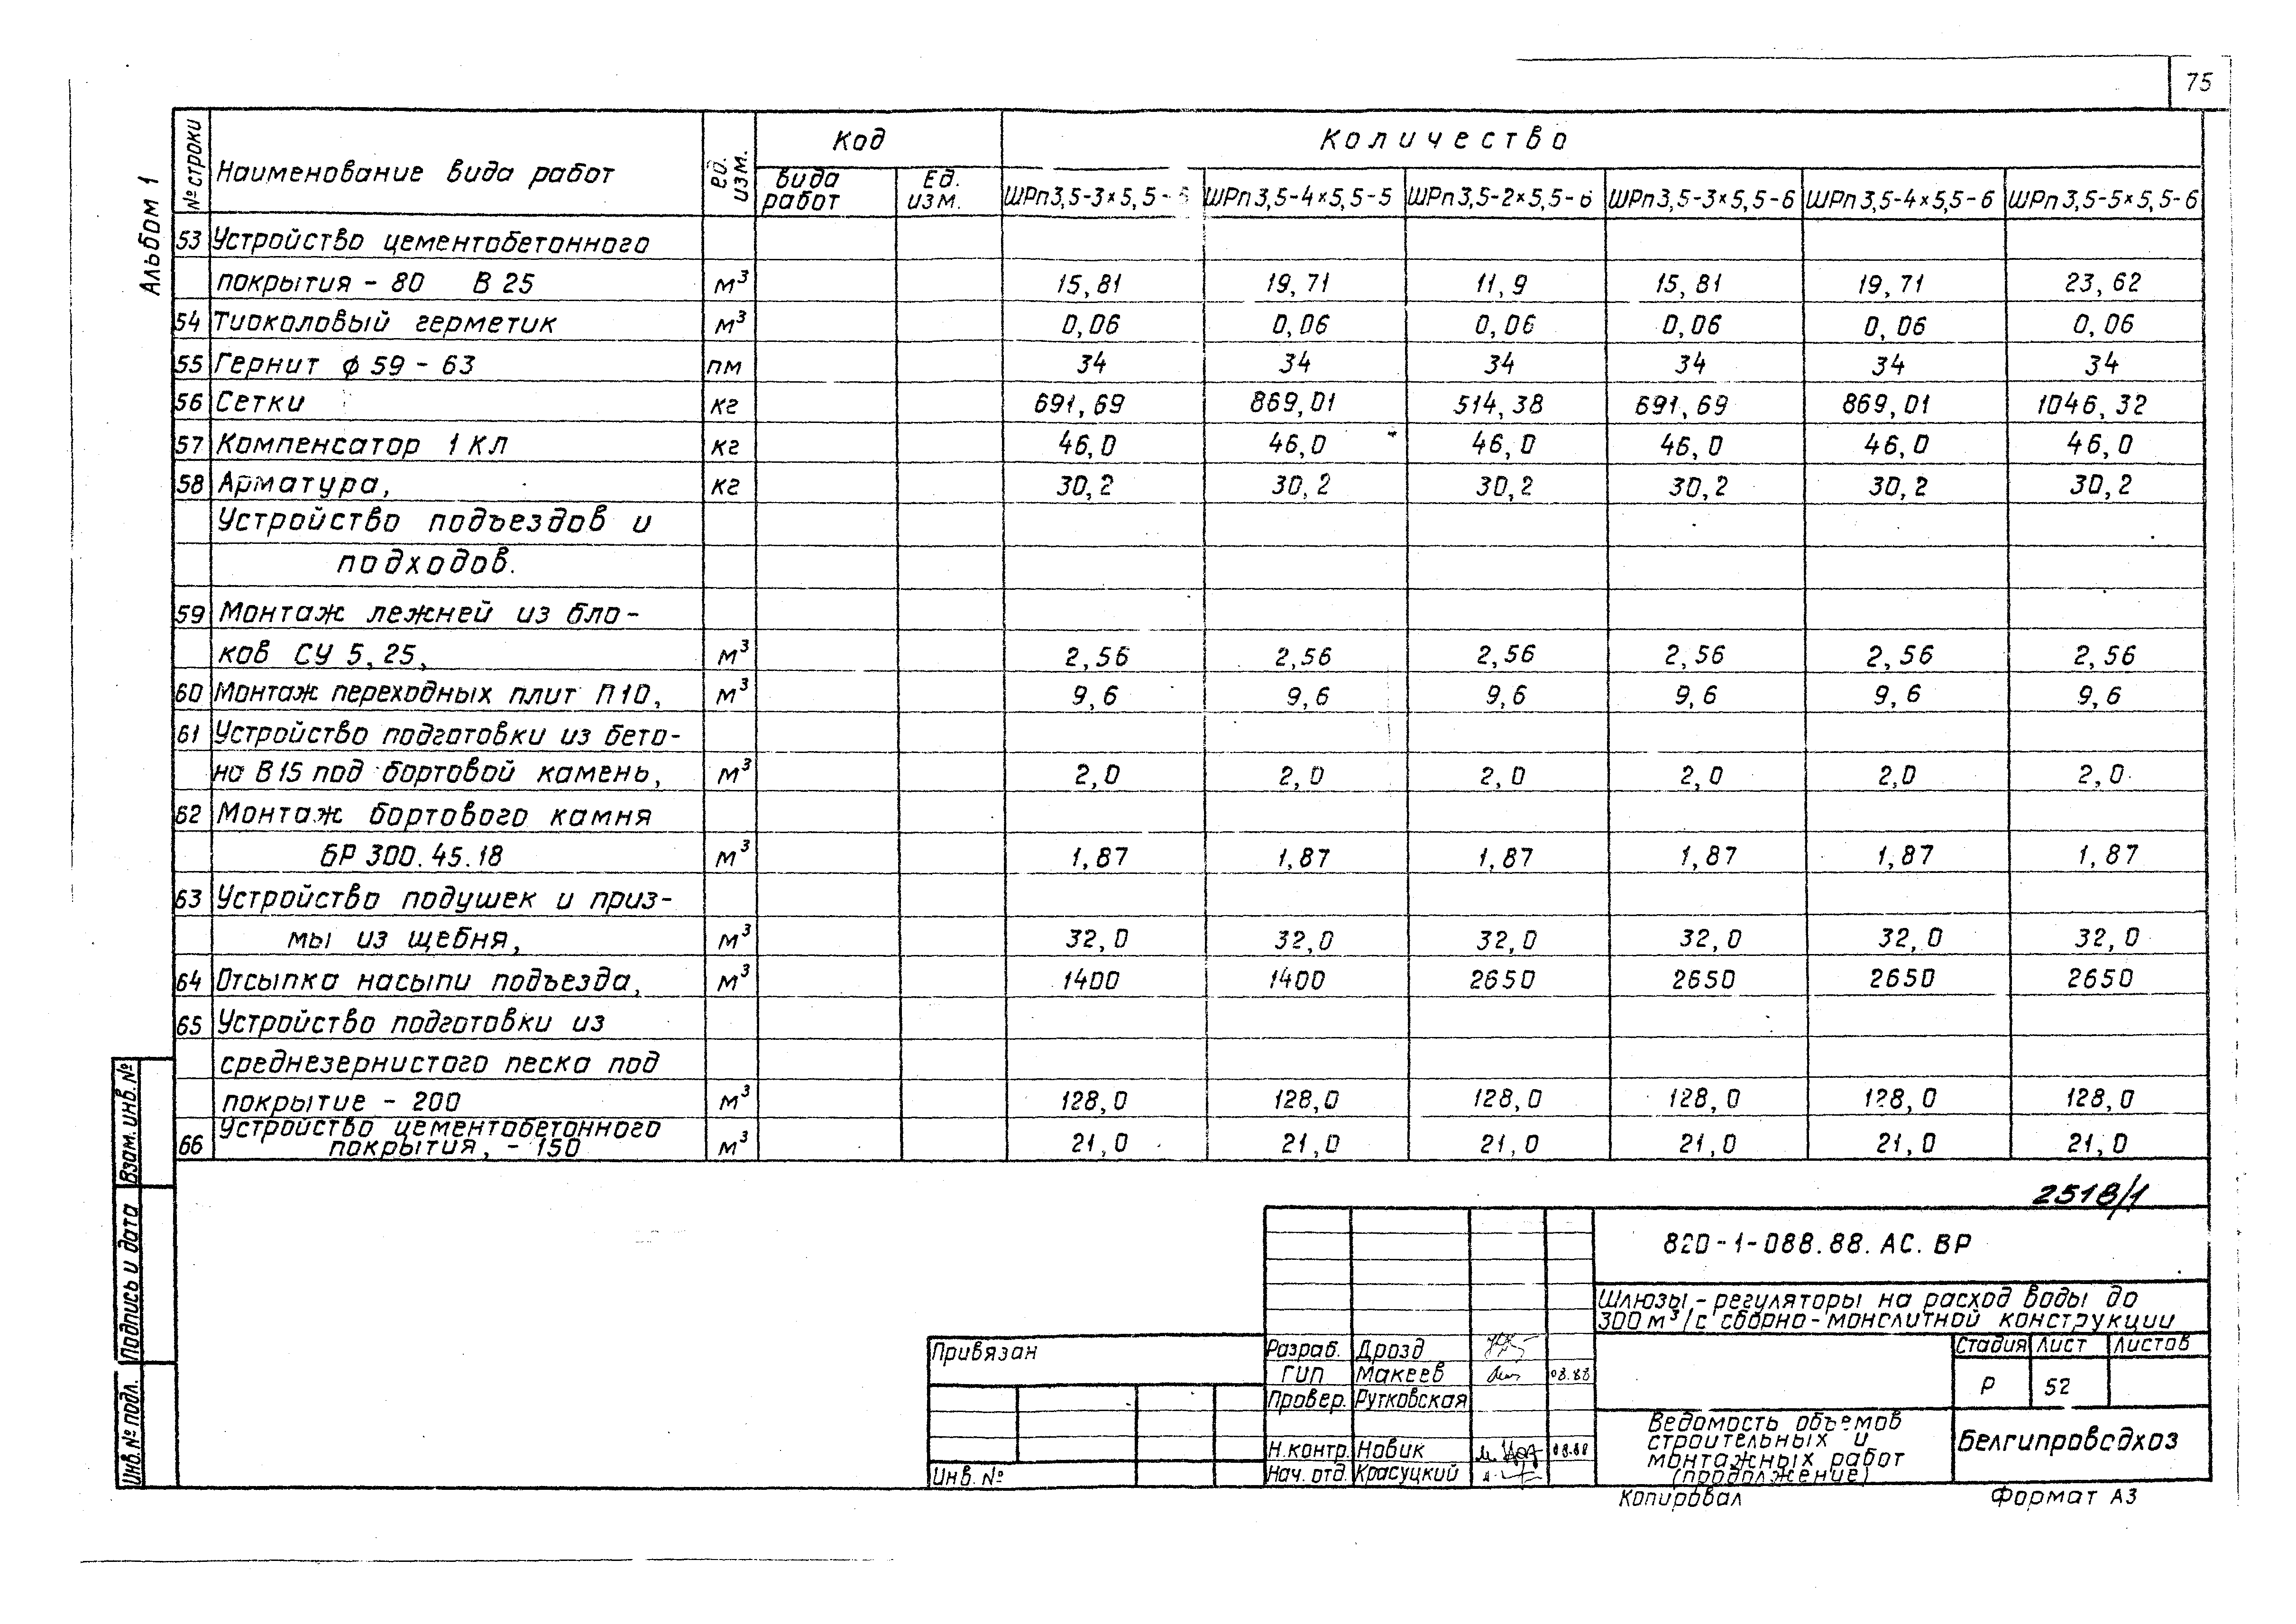 75
Альбом 1
№ строки | Наименование вида работ | Ед. изм. | Код | Количество
вида работ | Ед. изм. | ШРп3,5-3×5,5- | ШРп3,5-4×5,5-5 | ШРп3,5-2×5,5-6 | ШРп3,5-3×5,5-6 | ШРп3,5-4×5,5-6 | ШРп3,5-5×5,5-6
53 Устройство цементобетонного
покрытия - 80 В 25 м³ 15,81 19,71 11,9 15,81 19,71 23,62
54 Тиоколовый герметик м³ 0,06 0,06 0,06 0,06 0,06 0,06
55 Гернит ф 59 - 63 пм 34 34 34 34 34 34
56 Сетки кг 691,69 869,01 514,38 691,69 869,01 1046,32
57 Компенсатор 1 КЛ кг 46,0 46,0 46,0 46,0 46,0 46,0
58 Арматура, кг 30,2 30,2 30,2 30,2 30,2 30,2
Устройство подъездов и
подходов.
59 Монтаж лежней из бло-
ков СУ 5,25, м³ 2,56 2,56 2,56 2,56 2,56 2,56
60 Монтаж переходных плит П10, м³ 9,6 9,6 9,6 9,6 9,6 9,6
61 Устройство подготовки из бето-
на В15 под бортовой камень, м³ 2,0 2,0 2,0 2,0 2,0 2,0
62 Монтаж бортового камня
бР 300.45.18 м³ 1,87 1,87 1,87 1,87 1,87 1,87
63 Устройство подушек и приз-
мы из щебня, м³ 32,0 32,0 32,0 32,0 32,0 32,0
64 Отсыпка насыпи подъезда, м³ 1400 1400 2650 2650 2650 2650
65 Устройство подготовки из
среднезернистого песка под
покрытие - 200 м³ 128,0 128,0 128,0 128,0 128,0 128,0
66 Устройство цементобетонного
покрытия, - 150 м³ 21,0 21,0 21,0 21,0 21,0 21,0
Взам. инв. №
Подпись и дата
Инв. № подл.
2518/1
820-1-088.88. АС. ВР
Шлюзы - регуляторы на расход воды до
300 м³/с сборно-монолитной конструкции
Привязан
Инв. №
Разраб. Дрозд
ГИП Макеев 08.88
Провер. Рутковская
Н.контр. Новик 08.88
Нач. отд. Красуцкий
Стадия Лист Листов
Р 52
Ведомость объемов
строительных и
монтажных работ
(продолжение)
белгипроводхоз
Копировал
Формат А3